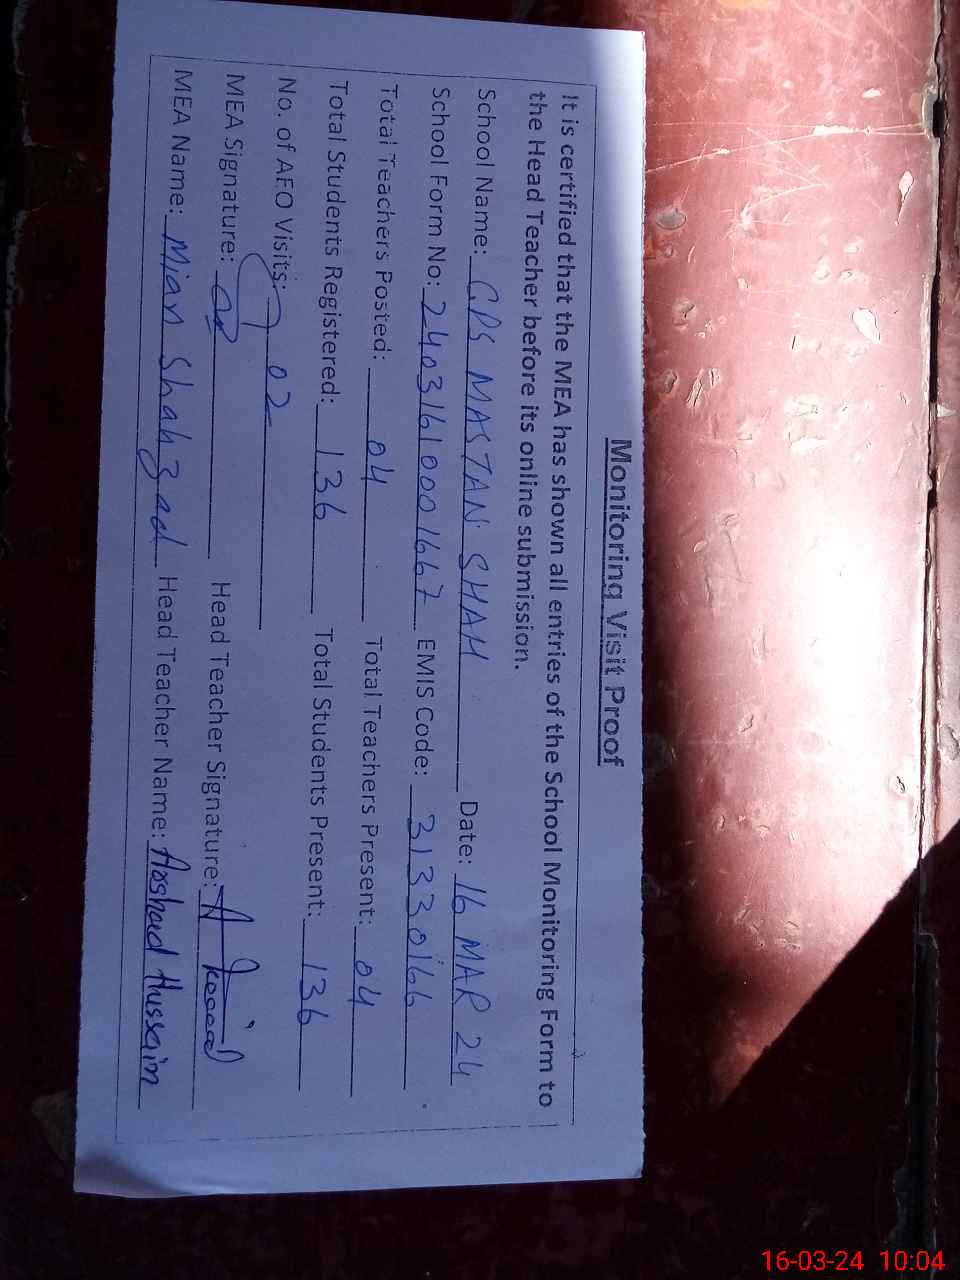 Monitoring Visit Proof
It is certified that the MEA has shown all entries of the School Monitoring Form to
the Head Teacher before its online submission.
School Name: G.P.S MASTAN SHAH Date: 16 MAR 24
School Form No: 24031610001667 EMIS Code: 31330166
Total Teachers Posted: 04 Total Teachers Present: 04
Total Students Registered: 136 Total Students Present: 136
No. of AEO Visits: 02
MEA Signature: Head Teacher Signature:
MEA Name: Mian Shahzad Head Teacher Name: Arshad Hussain
16-03-24 10:04